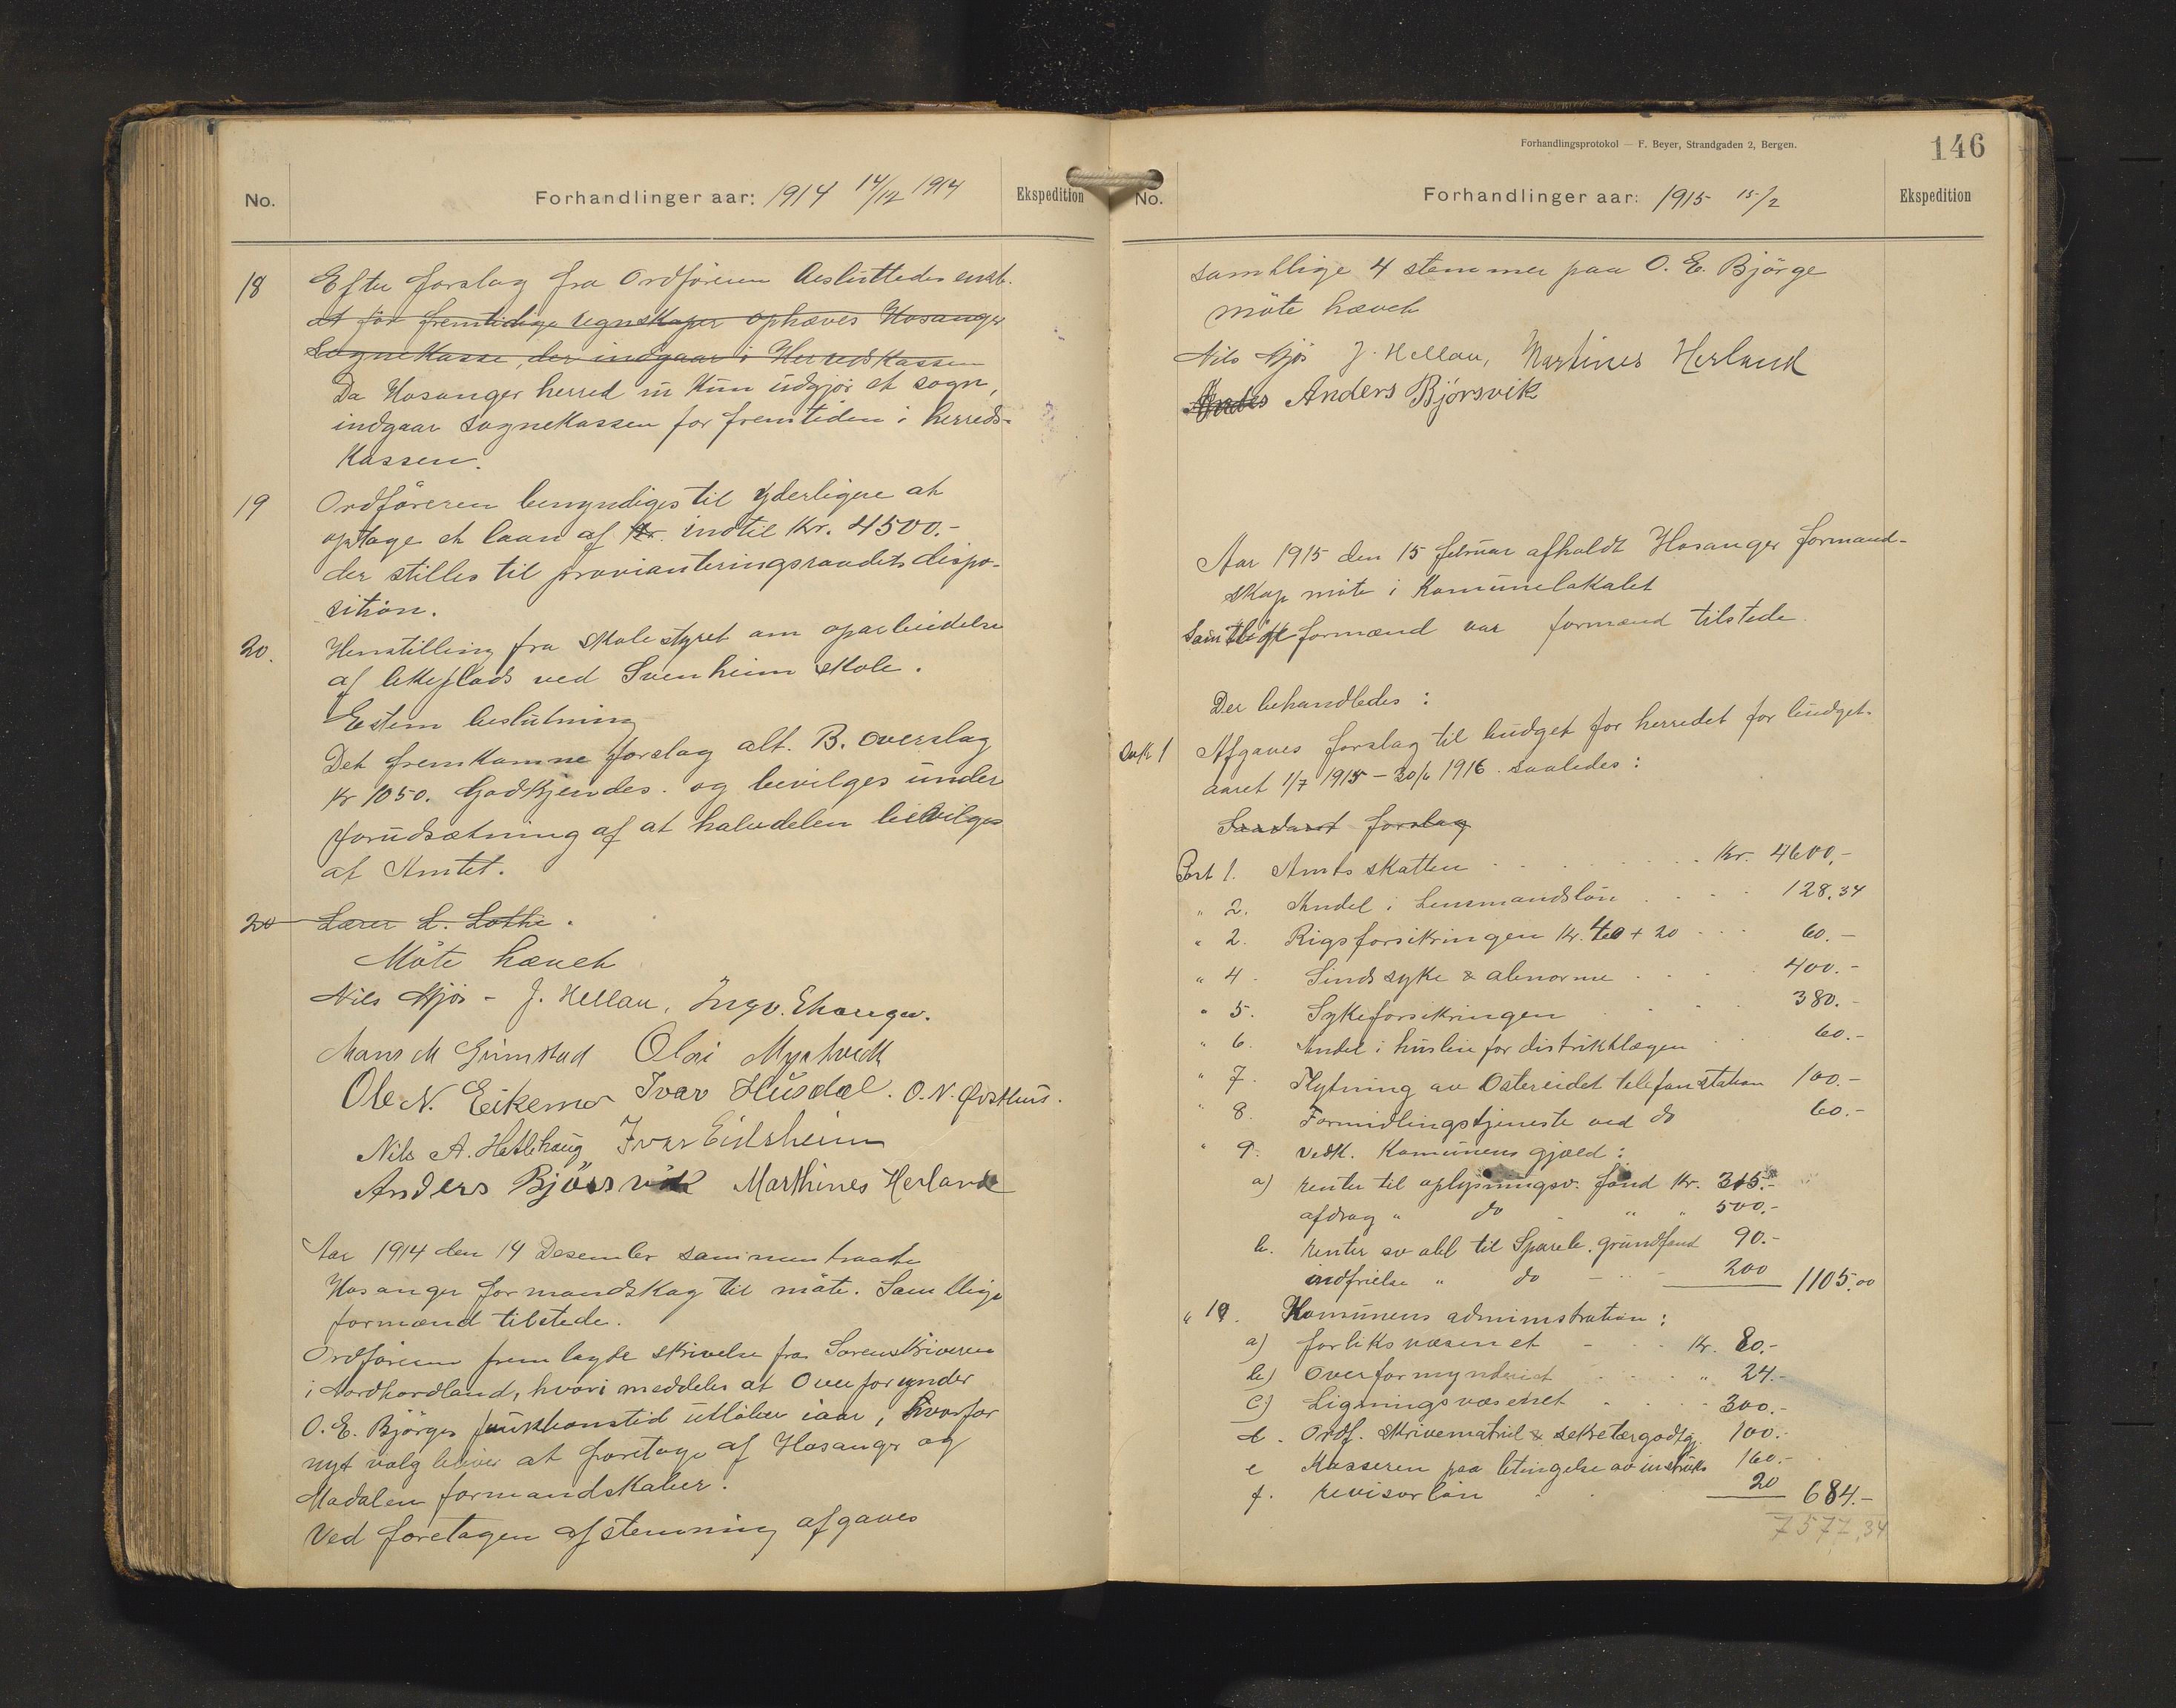 No.
Forhandlinger aar: 1914 14/12 1914
Ekspedition
18 Efter forslag fra Ordføreren besluttedes enst.
at for fremtidige regnskaper ophæves Hosanger
Sognekasse, der indgaar i Herredskassen
Da Hosanger herred nu kun udgjør et sogn,
indgaar sognekassen for fremtiden i herreds-
kassen.
19 Ordføreren bemyndiges til yderligere at
optage et laan af kr. indtil kr. 4500.-
der stilles til provianteringsraadets dispo-
sition.
20. Henstilling fra skolestyret om oparbeidelse
af lekeplads ved Svenheim skole.
Enstem beslutning
Det fremkomne forslag alt. B. overslag
kr 1050. Godkjendes. og bevilges under
forudsætning af at halvdelen bevilges
af Amtet.
20 Lærer L. Lothe.
Møte hævet
Nils Mjøs - J. Hellau, Ingv. Ehanger.
Mons M Grimstad Olai Myrtvedt
Ole N. Eikemo Ivar Husdal. O. N. Øvsthus.
Nils A. Hatlehaug Ivar Eidsheim
Anders Bjørsvik Marthines Herland
Aar 1914 den 14 Desember sammentraadte
Hosanger formandskap til møte. Samtlige
formænd tilstede.
Ordføreren fremlagde skrivelse fra Sorenskriveren
i Nordhordland, hvori meddeles at Overformynder
O. E. Bjørges funktionstid utløber iaar, hvorfor
nyt valg bliver at foretage af Hosanger og
Modalen formandskaber.
Ved foretagen afstemning afgaves
Forhandlingsprotokol — F. Beyer, Strandgaden 2, Bergen.
146
No.
Forhandlinger aar: 1915 15/2
Ekspedition
samtlige 4 stemmer paa O. E. Bjørge
møte hævet
Nils Mjøs J. Hellau, Martines Herland
Anders Anders Bjørsvik
Aar 1915 den 15 februar afholdt Hosanger formand-
skap møte i Komunelokalet
Samtlige formænd var formænd tilstede.
Der behandledes:
Sak 1 Afgaves forslag til budget for herredet for budget-
aaret 1/7 1915 - 30/6 1916 saaledes:
forslag
Post 1. Amtsskatten kr. 4600,-
" 2. Andel i Lensmandsløn 128,34
" 2. Rigsforsikringen kr. 40 + 20 60.-
" 4. Sindssyke & abnorme 400.-
" 5. Sykeforsikringen 380.-
" 6. Andel i husleie for distriktslægen 60.-
" 7. Flytning av Ostereidet telefonstation 100.-
" 8. Formidlingstjeneste ved do 60.-
" 9. Vedk. Komunens gjæld:
a) renter til oplysningsv. fond kr. 315.-
afdrag " do " " 500.-
b. renter av obl til Spareb. grundfond 90.-
indfrielse " do 200 1105,00
" 10. Komunens administration:
a) forliksvæsenet kr. 80.-
b) Overformynderiet " 24.-
c) Ligningsvæsenet 300.-
d. Ordf. skrivematriel & sekretærgodtg. 100.-
e Kasseren paa betingelse av instruks 160.-
f. revisorløn 20 684.-
7577,34